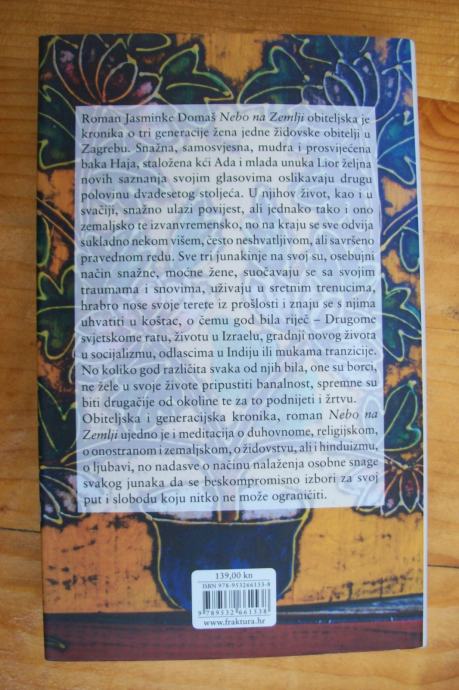 Roman Jasminke Domaš Nebo na Zemlji obiteljska je
kronika o tri generacije žena jedne židovske obitelji u
Zagrebu. Snažna, samosvjesna, mudra i prosvijećena
baka Haja, staložena kći Ada i mlada unuka Lior željna
novih saznanja svojim glasovima oslikavaju drugu
polovinu dvadesetog stoljeća. U njihov život, kao i u
svačiji, snažno ulazi povijest, ali jednako tako i ono
zemaljsko te izvanvremensko, no na kraju se sve odvija
sukladno nekom višem, često neshvatljivom, ali savršeno
pravednom redu. Sve tri junakinje na svoj su, osebujni
način snažne, moćne žene, suočavaju se sa svojim
traumama i snovima, uživaju u sretnim trenucima,
hrabro nose svoje terete iz prošlosti i znaju se s njima
uhvatiti u koštac, o čemu god bila riječ – Drugome
svjetskome ratu, životu u Izraelu, gradnji novog života
u socijalizmu, odlascima u Indiju ili mukama tranzicije.
No koliko god različita svaka od njih bila, one su borci,
ne žele u svoje živote pripustiti banalnost, spremne su
biti drugačije od okoline te za to podnijeti i žrtvu.
Obiteljska i generacijska kronika, roman Nebo na
Zemlji ujedno je i meditacija o duhovnome, religijskom,
o onostranom i zemaljskom, o židovstvu, ali i hinduizmu,
o ljubavi, no nadasve o načinu nalaženja osobne snage
svakog junaka da se beskompromisno izbori za svoj
put i slobodu koju nitko ne može ograničiti.
139,00 kn
ISBN 978-953266153-8
9 789532 661538
www.fraktura.hr